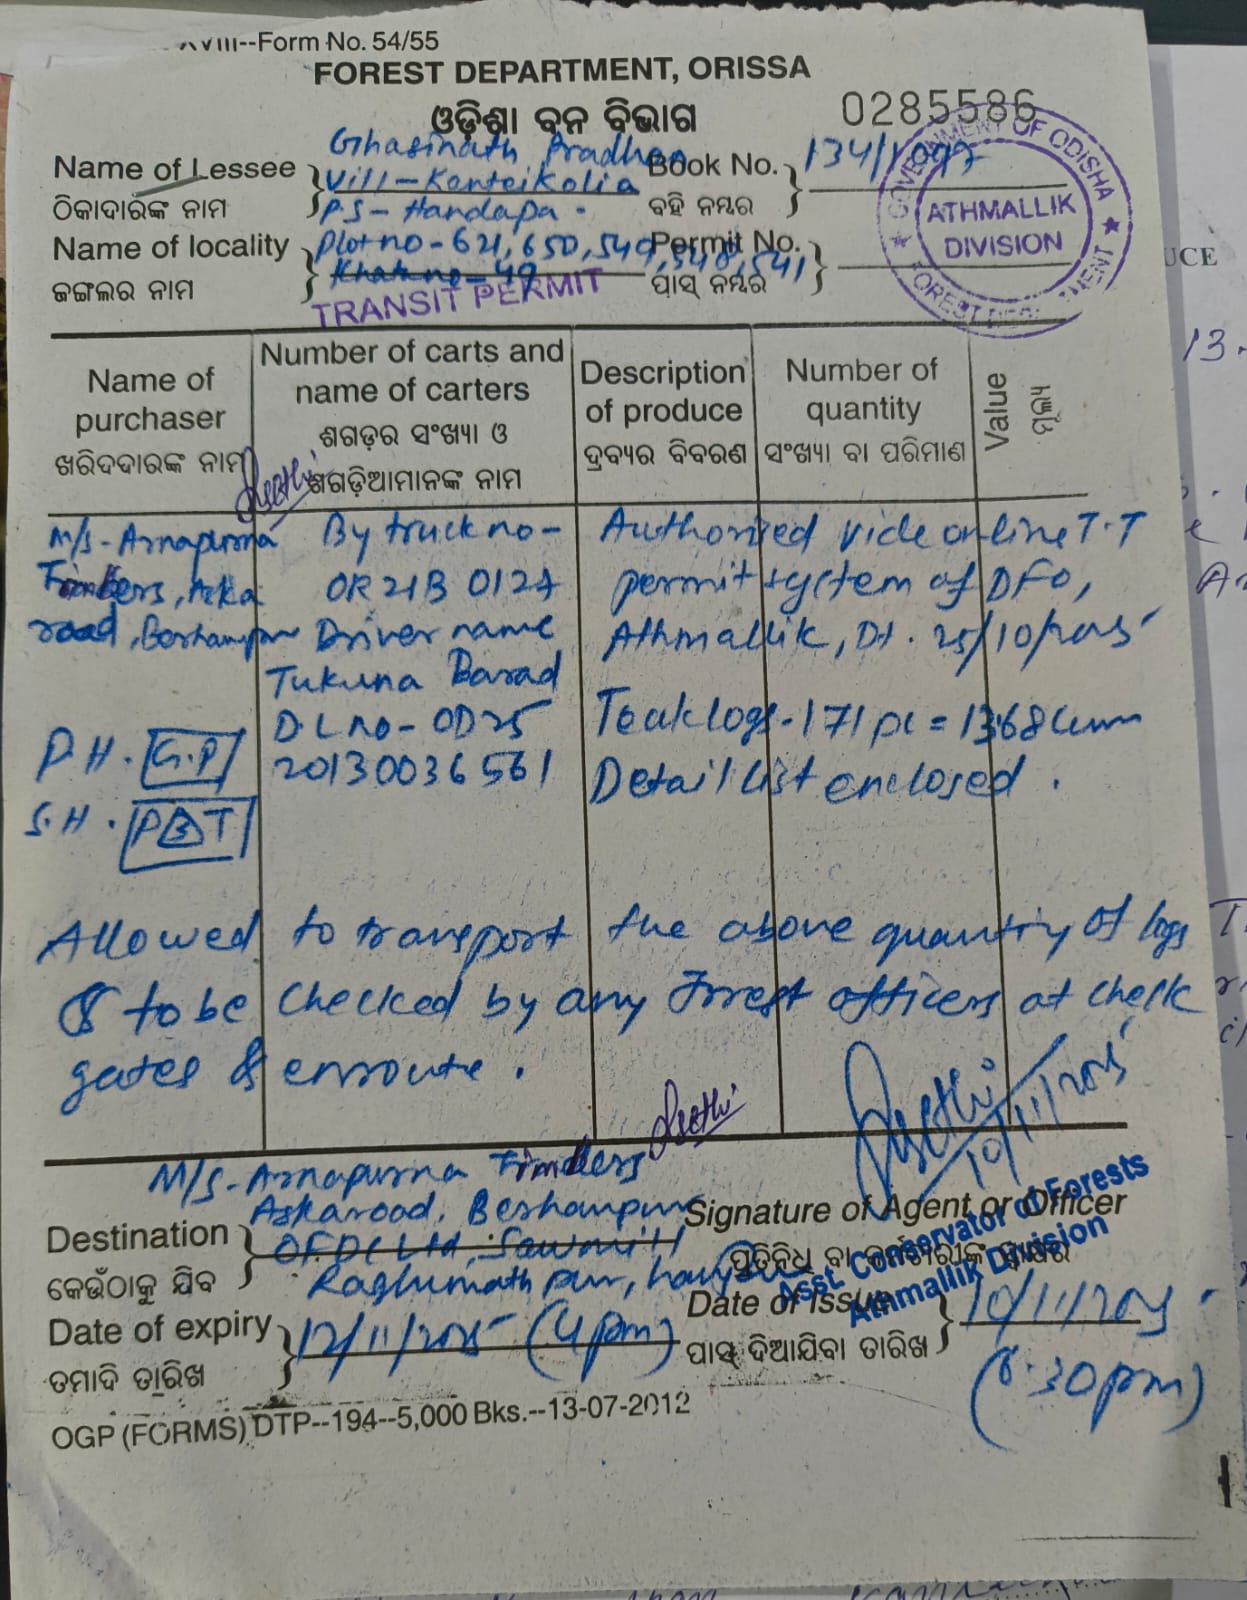 XVIII--Form No. 54/55
FOREST DEPARTMENT, ORISSA
ଓଡ଼ିଶା ବନ ବିଭାଗ
0285586
Name of Lessee
ଠିକାଦାରଙ୍କ ନାମ
Ghasinath Pradhan
Vill-Kanteikolia
PS- Handapa.
Book No.
ବହି ନମ୍ବର
134/1997
Name of locality
ଜଙ୍ଗଲର ନାମ
Plot no-621,650,549,548,541
Khata no-49
Permit No.
ପାସ୍ ନମ୍ବର
TRANSIT PERMIT
GOVERNMENT OF ODISHA
ATHMALLIK
DIVISION
FOREST DEPARTMENT
Name of purchaser
ଖରିଦଦାରଙ୍କ ନାମ
Number of carts and
name of carters
ଶଗଡ଼ର ସଂଖ୍ୟା ଓ
ଶଗଡ଼ିଆମାନଙ୍କ ନାମ
Description
of produce
ଦ୍ରବ୍ୟର ବିବରଣ
Number of
quantity
ସଂଖ୍ୟା ବା ପରିମାଣ
Value
ମୂଲ୍ୟ
M/s-Annapurna
Timbers, Aska
road, Berhampur
P.H. G.P
S.H.
By truck no-
OR21B 0127
Driver name
Tukuna Barad
DL no- OD25
20130036561
Authorised vide online T.T
permit system of DFO,
Athmallik, Dt. 25/10/2025
Teak logs-171 pc = 13.68 cum
Detail list enclosed.
Allowed to transport the above quantity of logs
& to be checked by any Forest officers at check
gates & enroute.
10/11/2025
M/s-Annapurna Timbers
Askaroad, Berhampur
OFDC Ltd, Sawmill
Raghunathpur,
Destination
କେଉଁଠାକୁ ଯିବ
Signature of Agent or Officer
ପ୍ରତିନିଧି ବା କର୍ମଚାରୀଙ୍କ ସ୍ୱାକ୍ଷର
Asst. Conservator of Forests
Athmallik Division
Date of expiry
ତମାଦି ତାରିଖ
12/11/2025 (4pm)
Date of Issue
ପାସ୍ ଦିଆଯିବା ତାରିଖ
10/11/2025
OGP (FORMS) DTP--194--5,000 Bks.--13-07-2012